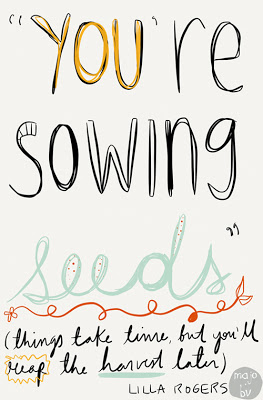 "YOU're
SOWING
seeds"
(things take time, but you'll
reap the harvest later)
LILLA ROGERS
majo
BV